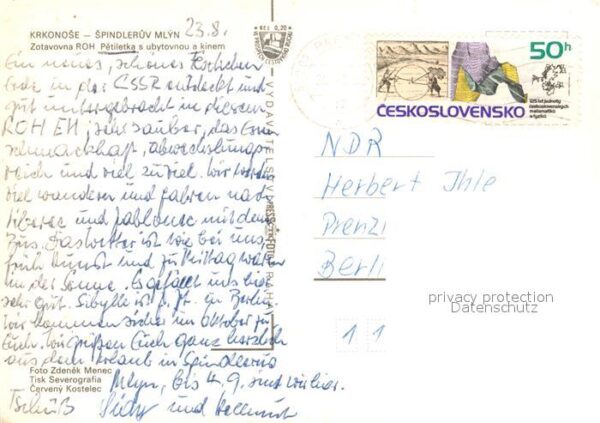 KRKONOŠE – ŠPINDLERŮV MLÝN
23.8.
Zotavovna ROH Pětiletka s ubytovnou a kinem
Kčs 0,20
Ein neues, schönes Fleckchen
Erde in der ČSSR entdeckt und
gut untergebracht in diesem
ROH EH, sehr sauber, das Essen
schmackhaft, abwechslungs
reich und viel zu viel. Wir werden
viel wandern und fahren nach
Liberec und Jablonec mit dem
Bus. Das Wetter ist wie bei uns,
früh Dunst und zu Mittag warm
in der Sonne. Es gefällt uns hier
sehr gut. Sibylle ist z. Zt. in Berlin
wir kommen sicher im Oktober zu
Euch. Wir grüßen Euch ganz herzlich
aus dem Urlaub in Spindlerus
Foto Zdeněk Menec
Tisk Severografia
Červený Kostelec
Mlyn, bis 4.9. sind wir hier.
Tschüß und Hellmut
PRESSFOTO
50h
ČESKOSLOVENSKO
125 let jednoty
československých
matematiků
a fyziků
NDR
Herbert Ihle
Prenzl
Berli
privacy protection
Datenschutz
11